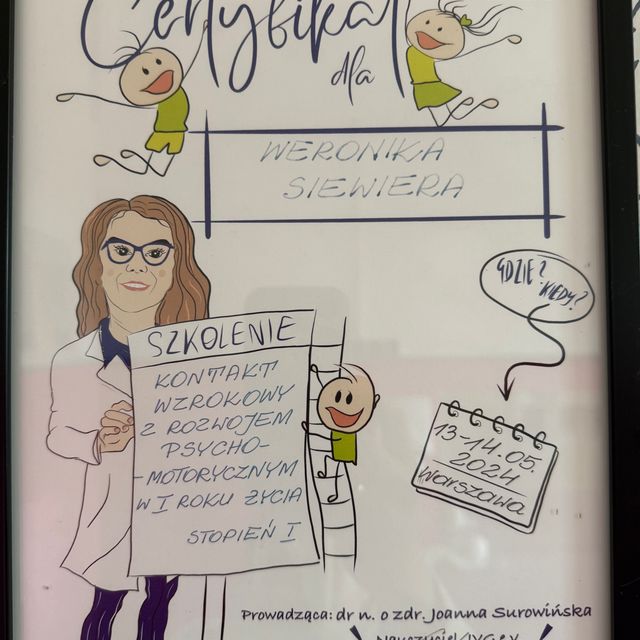 Certyfikat
dla
WERONIKA
SIEWIERA
GDZIE?
KIEDY?
SZKOLENIE
KONTAKT
WZROKOWY
Z ROZWOJEM
PSYCHO-
-MOTORYCZNYM
W I ROKU ŻYCIA
STOPIEŃ I
13-14.05.
2024
Warszawa
Prowadząca: dr n. o zdr. Joanna Surowińska